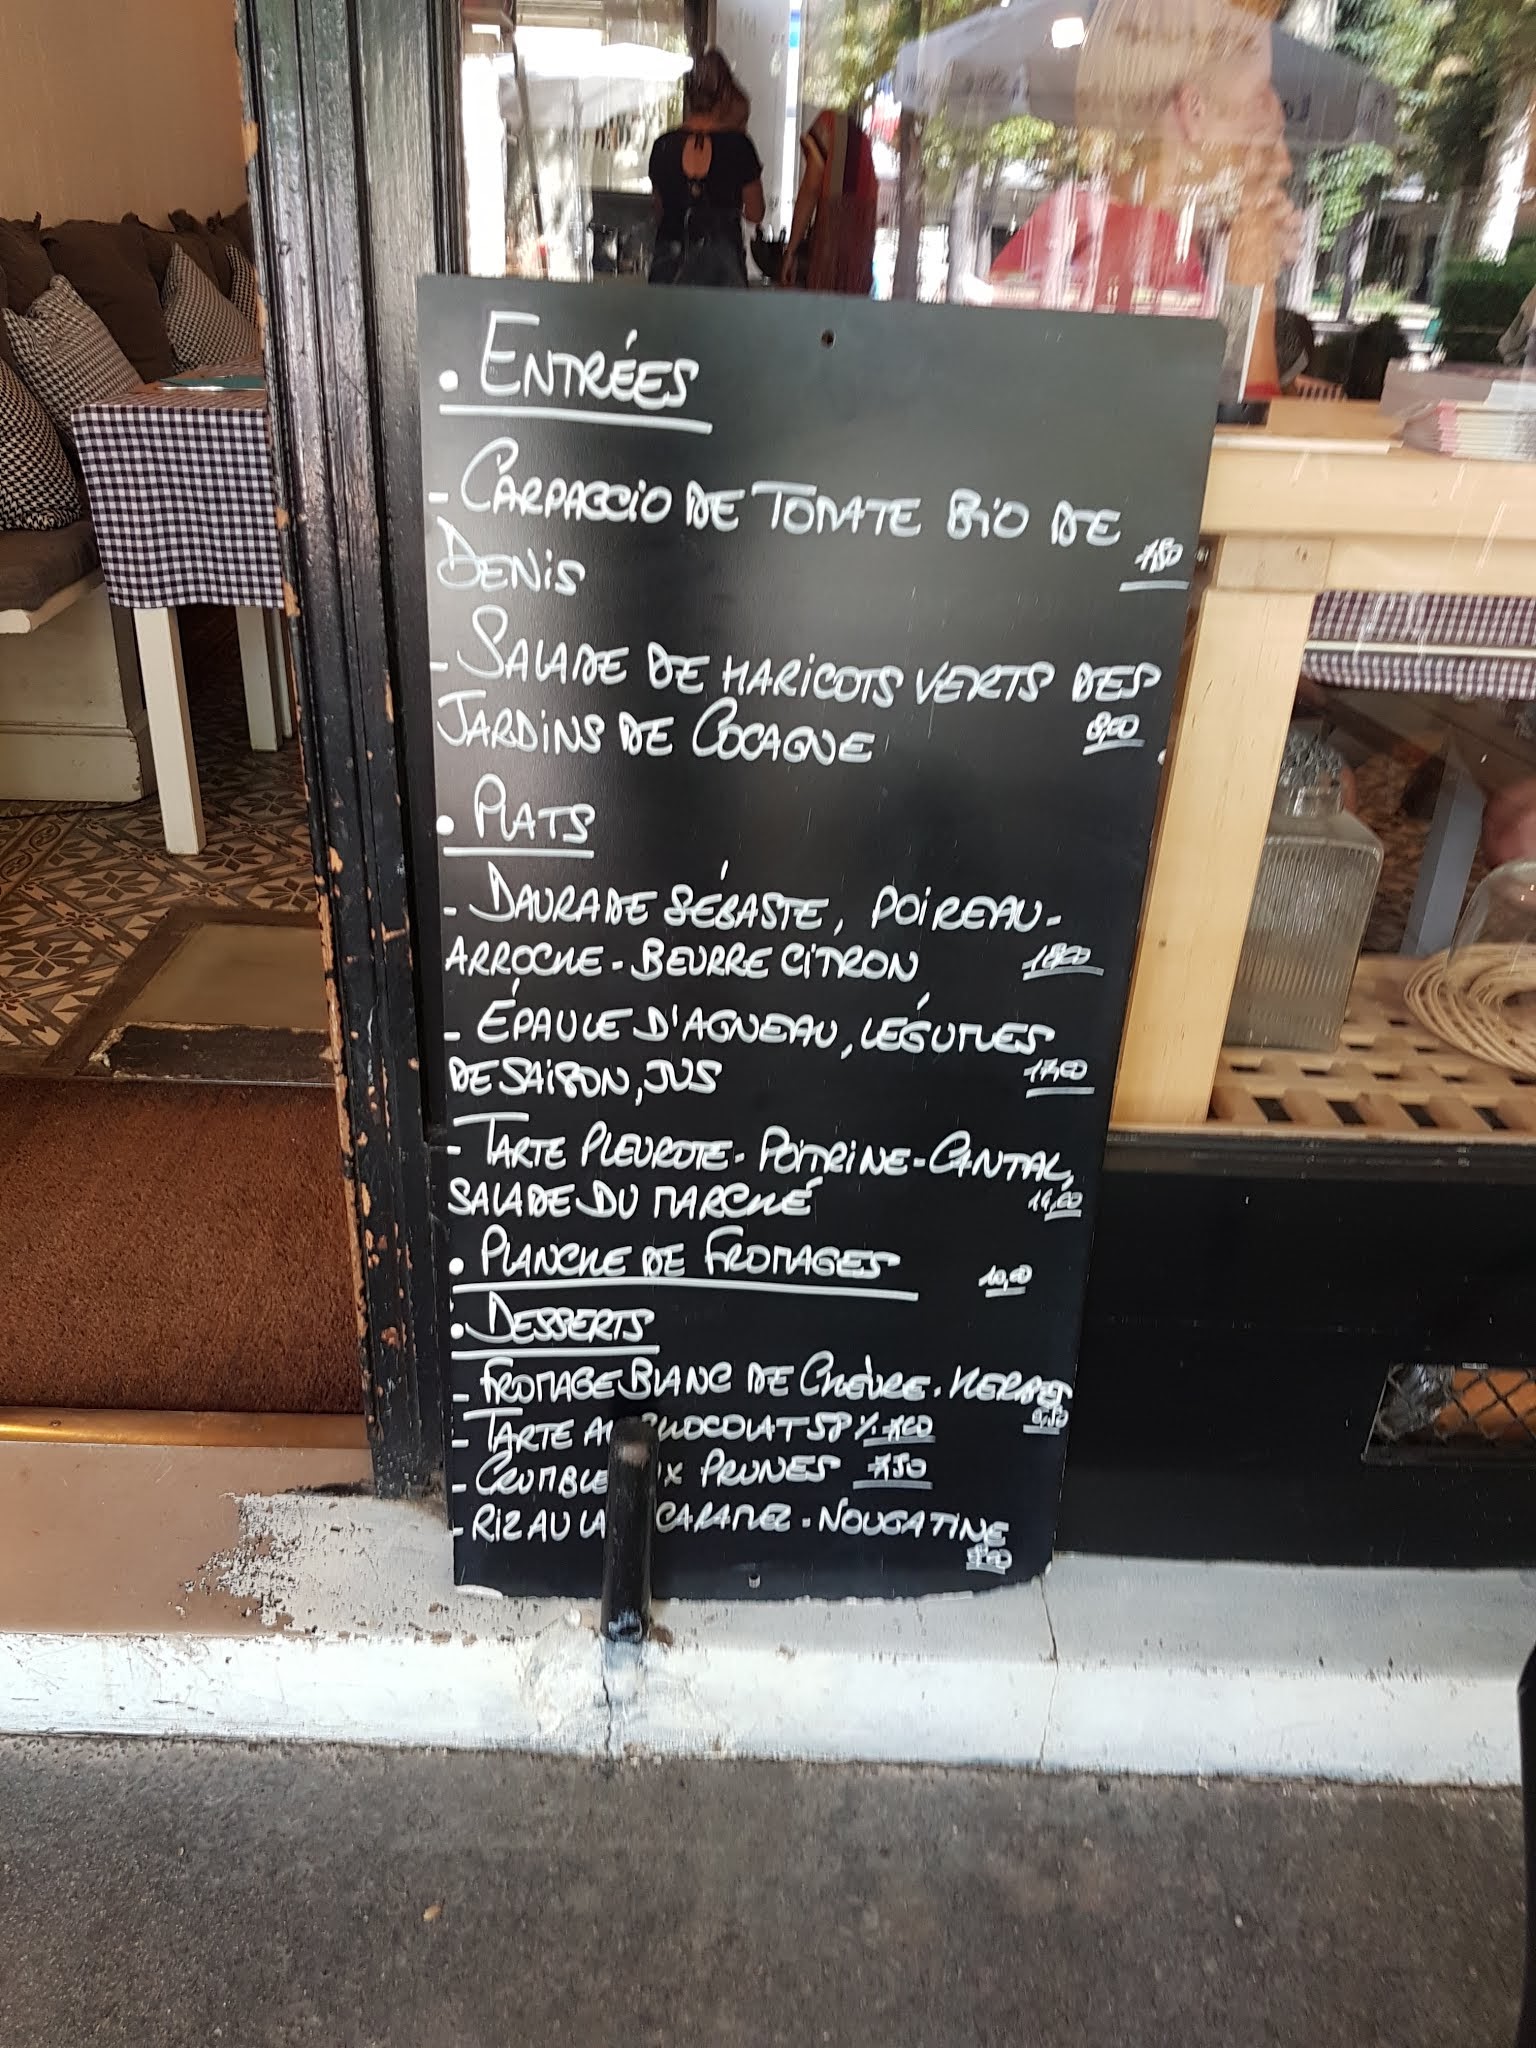 • ENTRÉES
- CARPACCIO DE TOMATE BIO DE
DENIS 7,50
- SALADE DE HARICOTS VERTS DES
JARDINS DE COCAGNE 8,00
• PLATS
- DAURADE SÉBASTE, POIREAU-
ARROCHE - BEURRE CITRON 18,00
- ÉPAULE D'AGNEAU, LÉGUMES
DE SAISON, JUS 17,00
- TARTE PLEUROTE - POITRINE - CANTAL,
SALADE DU MARCHÉ 14,00
• PLANCHE DE FROMAGES 10,00
• DESSERTS
- FROMAGE BLANC DE CHÈVRE - HERBES
- TARTE AU CHOCOLAT 58%
- CRUMBLE AUX PRUNES 7,50
- RIZ AU LAIT CARAMEL - NOUGATINE